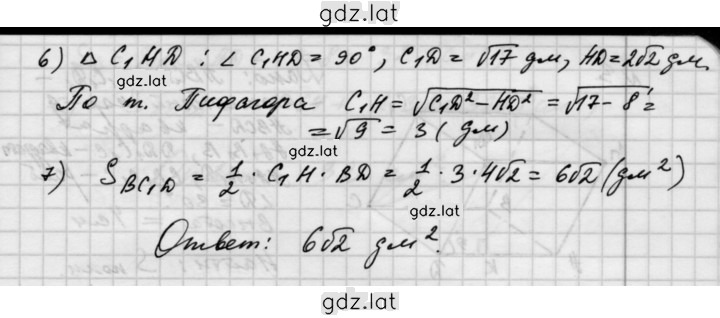 gdz.lat
6) Δ C₁HD : ∠ C₁HD = 90°, C₁D = √17 дм, HD = 2√2 дм.
gdz.lat
По т. Пифагора C₁H = √(C₁D² - HD²) = √(17 - 8) =
= √9 = 3 (дм)
gdz.lat
7) S_BC₁D = 1/2 · C₁H · BD = 1/2 · 3 · 4√2 = 6√2 (дм²)
gdz.lat
Ответ: 6√2 дм².
gdz.lat